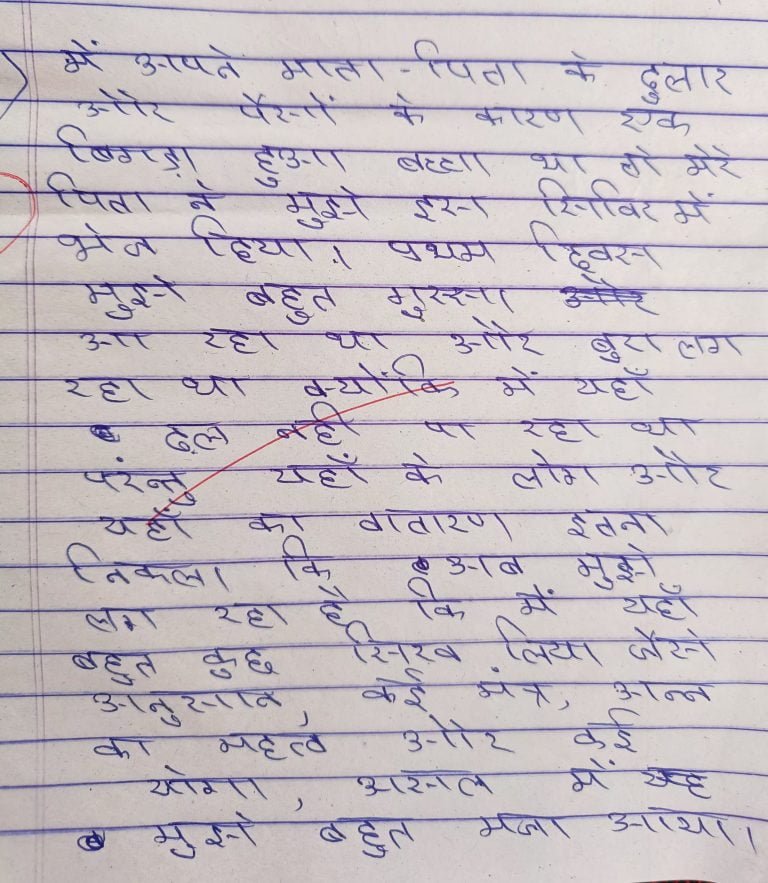 में अपने माता-पिता के दुलार
और पैसों के कारण एक
बिगड़ा हुआ बच्चा था तो मेरे
पिता ने मुझे इस सिविर में
भेज दिया। प्रथम दिवस
मुझे बहुत गुस्सा और
आ रहा था और बुरा लग
रहा था क्योंकि में यहाँ
ढल नही पा रहा था
परन्तु यहाँ के लोग और
यहाँ का वातारण इतना
निकला कि अब मुझे
लग रहा है कि में यहाँ
बहुत कुछ सिख लिया जैसे
अनुसान, कई मंत्र, अन्न
का महत्व और कई
योगा, असल में यह
मुझे बहुत मजा आया।